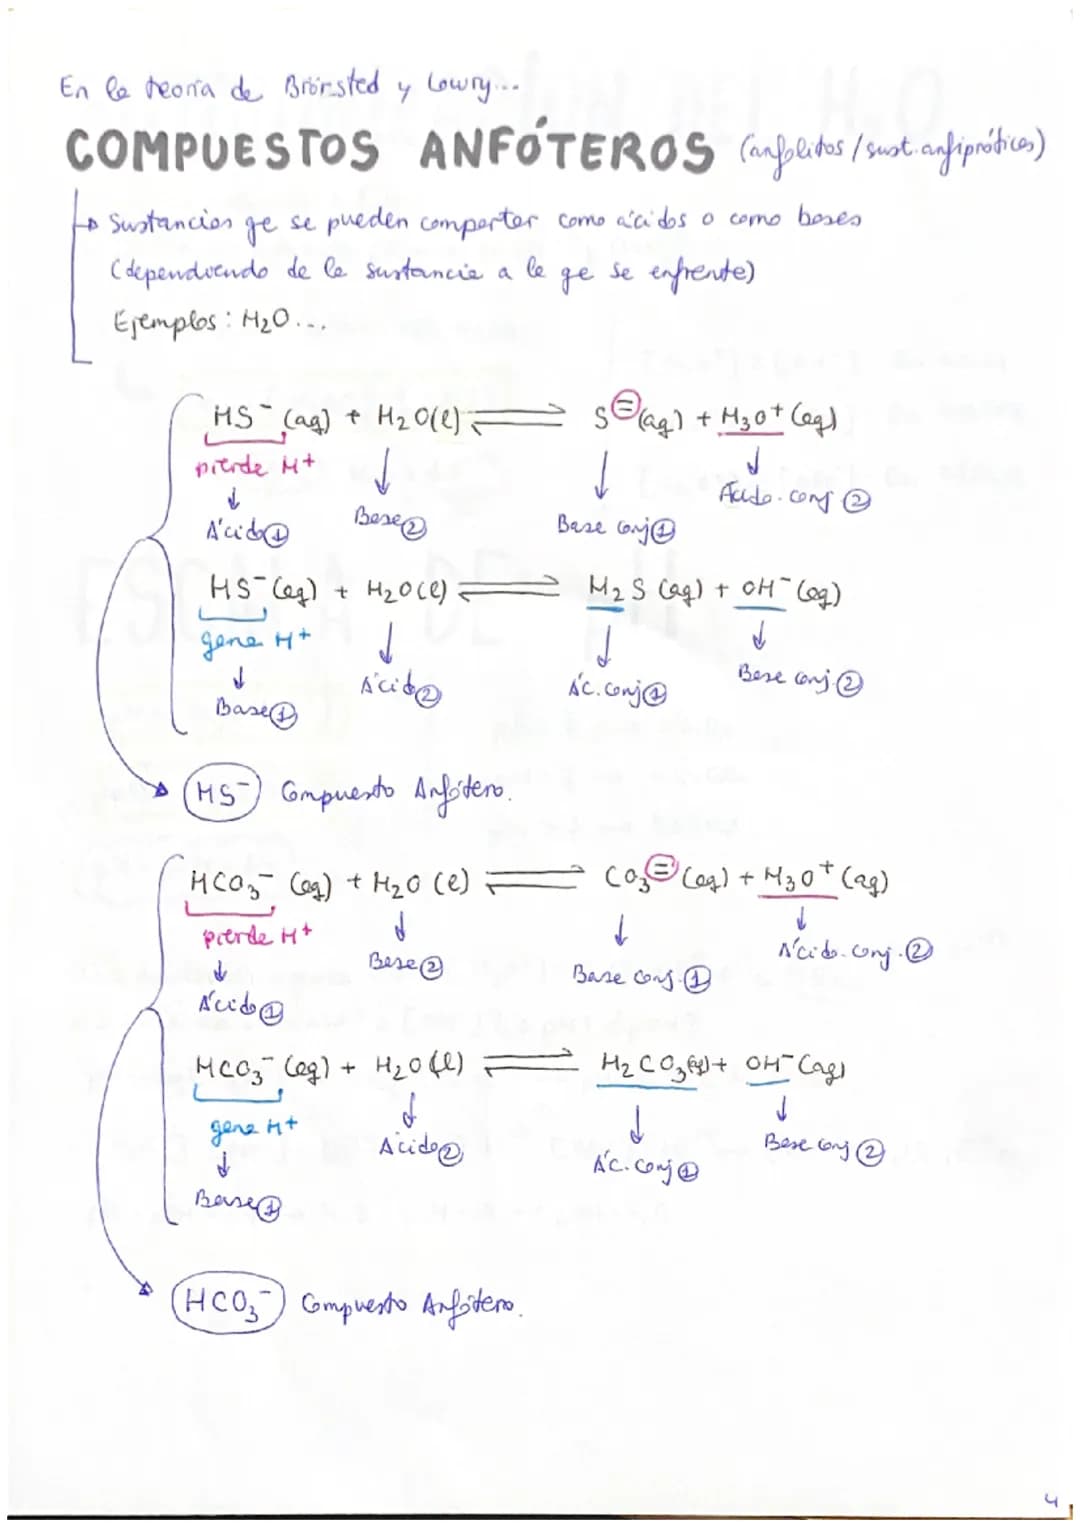 En la teoría de Brönsted y Lowry...
COMPUESTOS ANFÓTEROS (anfolitos / sust. anfipróticas)
→ Sustancias qe se pueden comportar como ácidos o como bases
(dependiendo de la sustancia a la qe se enfrente)
Ejemplos: H₂O...
HS⁻ (aq) + H₂O(l) ⇌ S⁼(aq) + H₃O⁺ (aq)
pierde H⁺ ↓ ↓ ↓
↓ Base② Base conj① Ácido. conj ②
Ácido①
HS⁻ (aq) + H₂O(l) ⇌ H₂S (aq) + OH⁻ (aq)
gana H⁺ ↓ ↓ ↓
↓ Ácido② Ác. conj① Base conj. ②
Base①
HS⁻ Compuesto Anfótero.
HCO₃⁻ (aq) + H₂O (l) ⇌ CO₃⁼ (aq) + H₃O⁺ (aq)
pierde H⁺ ↓ ↓ ↓
↓ Base② Base conj.① Ácido. conj.②
Ácido①
HCO₃⁻ (aq) + H₂O (l) ⇌ H₂CO₃(aq) + OH⁻ (aq)
gana H⁺ ↓ ↓ ↓
↓ Ácido② Ác. conj① Base conj②
Base①
HCO₃⁻ Compuesto Anfótero.
4